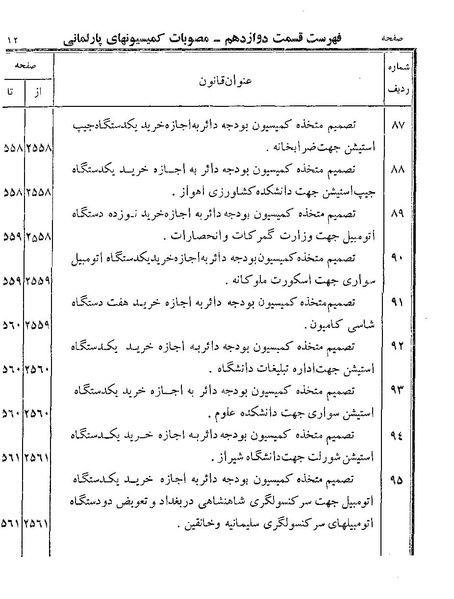 صفحه فهرست قسمت دوازدهم ـ مصوبات کمیسیونهای پارلمانی ۱۲
شماره ردیف عنوان قانون صفحه
از تا
۸۷ تصمیم متخذه کمیسیون بودجه دائر به اجازه خرید یکدستگاه جیپ
استیشن جهت ضرابخانه . ۲۵۵۸ ۲۵۵۸
۸۸ تصمیم متخذه کمیسیون بودجه دائر به اجازه خرید یکدستگاه
جیپ استیشن جهت دانشکده کشاورزی اهواز . ۲۵۵۸ ۲۵۵۸
۸۹ تصمیم متخذه کمیسیون بودجه دائر به اجازه خرید نوزده دستگاه
اتومبیل جهت وزارت گمرکات و انحصارات . ۲۵۵۸ ۲۵۵۹
۹۰ تصمیم متخذه کمیسیون بودجه دائر به اجازه خرید یکدستگاه اتومبیل
سواری جهت اسکورت ملوکانه . ۲۵۵۹ ۲۵۵۹
۹۱ تصمیم متخذه کمیسیون بودجه دائر به اجازه خرید هفت دستگاه
شاسی کامیون . ۲۵۵۹ ۲۵۶۰
۹۲ تصمیم متخذه کمیسیون بودجه دائر به اجازه خرید یکدستگاه
استیشن جهت اداره تبلیغات دانشگاه . ۲۵۶۰ ۲۵۶۰
۹۳ تصمیم متخذه کمیسیون بودجه دائر به اجازه خرید یکدستگاه
استیشن سواری جهت دانشکده علوم . ۲۵۶۰ ۲۵۶۰
۹۴ تصمیم متخذه کمیسیون بودجه دائر به اجازه خرید یکدستگاه
استیشن شورلت جهت دانشگاه شیراز . ۲۵۶۱ ۲۵۶۱
۹۵ تصمیم متخذه کمیسیون بودجه دائر به اجازه خرید یکدستگاه
اتومبیل جهت سرکنسولگری شاهنشاهی در بغداد و تعویض دو دستگاه
اتومبیلهای سرکنسولگری سلیمانیه و خانقین . ۲۵۶۱ ۲۵۶۱